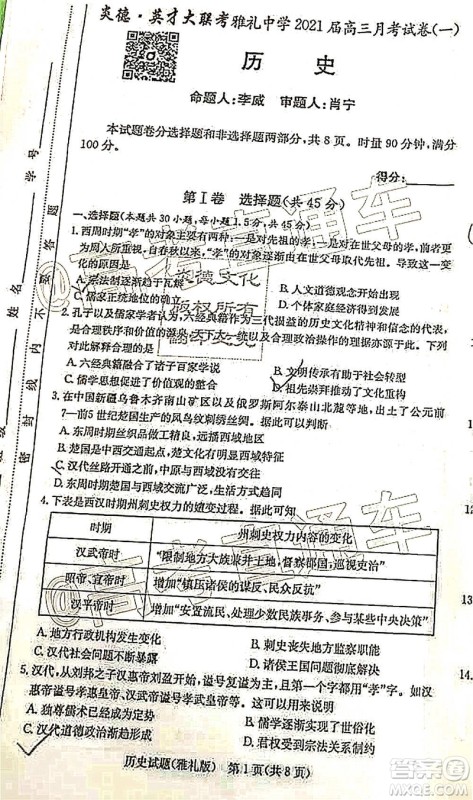 炎德·英才大联考雅礼中学2021届高三月考试卷(一)
历 史
命题人:李威 审题人:肖宁
本试题卷分选择题和非选择题两部分,共8页。时量90分钟,满分
100分。
得分:
第Ⅰ卷 选择题(共45分)
一、选择题(本题共30小题,每小题1.5分,共45分)
1. 西周时期“孝”的对象主要有四种:一是考妣,二是宗室、宗庙,
周人所尊崇。自春秋以来,“孝”的对象逐渐由在世父母取代先祖。导致这一变
化的原因是
A. 宗法制逐渐趋于瓦解
B. 人文道德观念开始出现
C. 儒家正统地位的确立
D. 个体家庭经济得到发展
2. 孔子以及儒家学者认为,六经典籍作为三代损益的历史文化精神和信念的代表,
是合理秩序和价值的渊源,
明
A. 六经典籍融合了诸子百家学说
B. 文明传承有助于社会转型
C. 儒学思想促进了价值观的统一
D. 祖先崇拜推动了文化重构
3. 在中国新疆乌鲁木齐南山矿区以及俄罗斯阿尔泰山北麓等地,出土了公元前
7—前5世纪楚国生产的凤鸟纹刺绣丝绸。据此可知
A. 东周时期丝织业做工精良,远销西域
B. 楚文化具有鲜明的地域特征
C. 汉代丝路开通之前,中原与西域没有实现互通
D. 东周时期楚国与西域交流广泛,生活方式趋同
4. 下表是西汉时期州刺史权力的嬗变过程。据此可知
时期 州刺史权力内容的变化
汉武帝时 “限制地方大族兼并土地,督察郡国,巡视吏治”
昭帝、宣帝时 增加“镇压诸侯的谋反、民众反抗”
汉平帝时 增加“安置流民、处理少数民族事务、参与某些中央决策”
A. 地方行政机构发生变化
B. 刺史丧失地方监察职能
C. 汉代社会矛盾不断暴露
D. 诸侯国问题彻底解决
5. 汉代,从刘邦之子汉惠帝刘盈开始,谥号且第一个字都用“孝”字。如汉
惠帝谥号孝惠皇帝、汉武帝谥号孝武皇帝等。这一现象反映了
A. 独尊儒术成为主流意识
B. 儒学逐渐实现系统化
C. 汉代道德政治渐趋形成
D. 君权受到宗法关系制约
历史试题(雅礼版) 第1页(共8页)
学号
姓名
密封线内不要答题
炎德文化
版权所有
翻印必究
高考直通车
12
13
14.
MXQE.COM